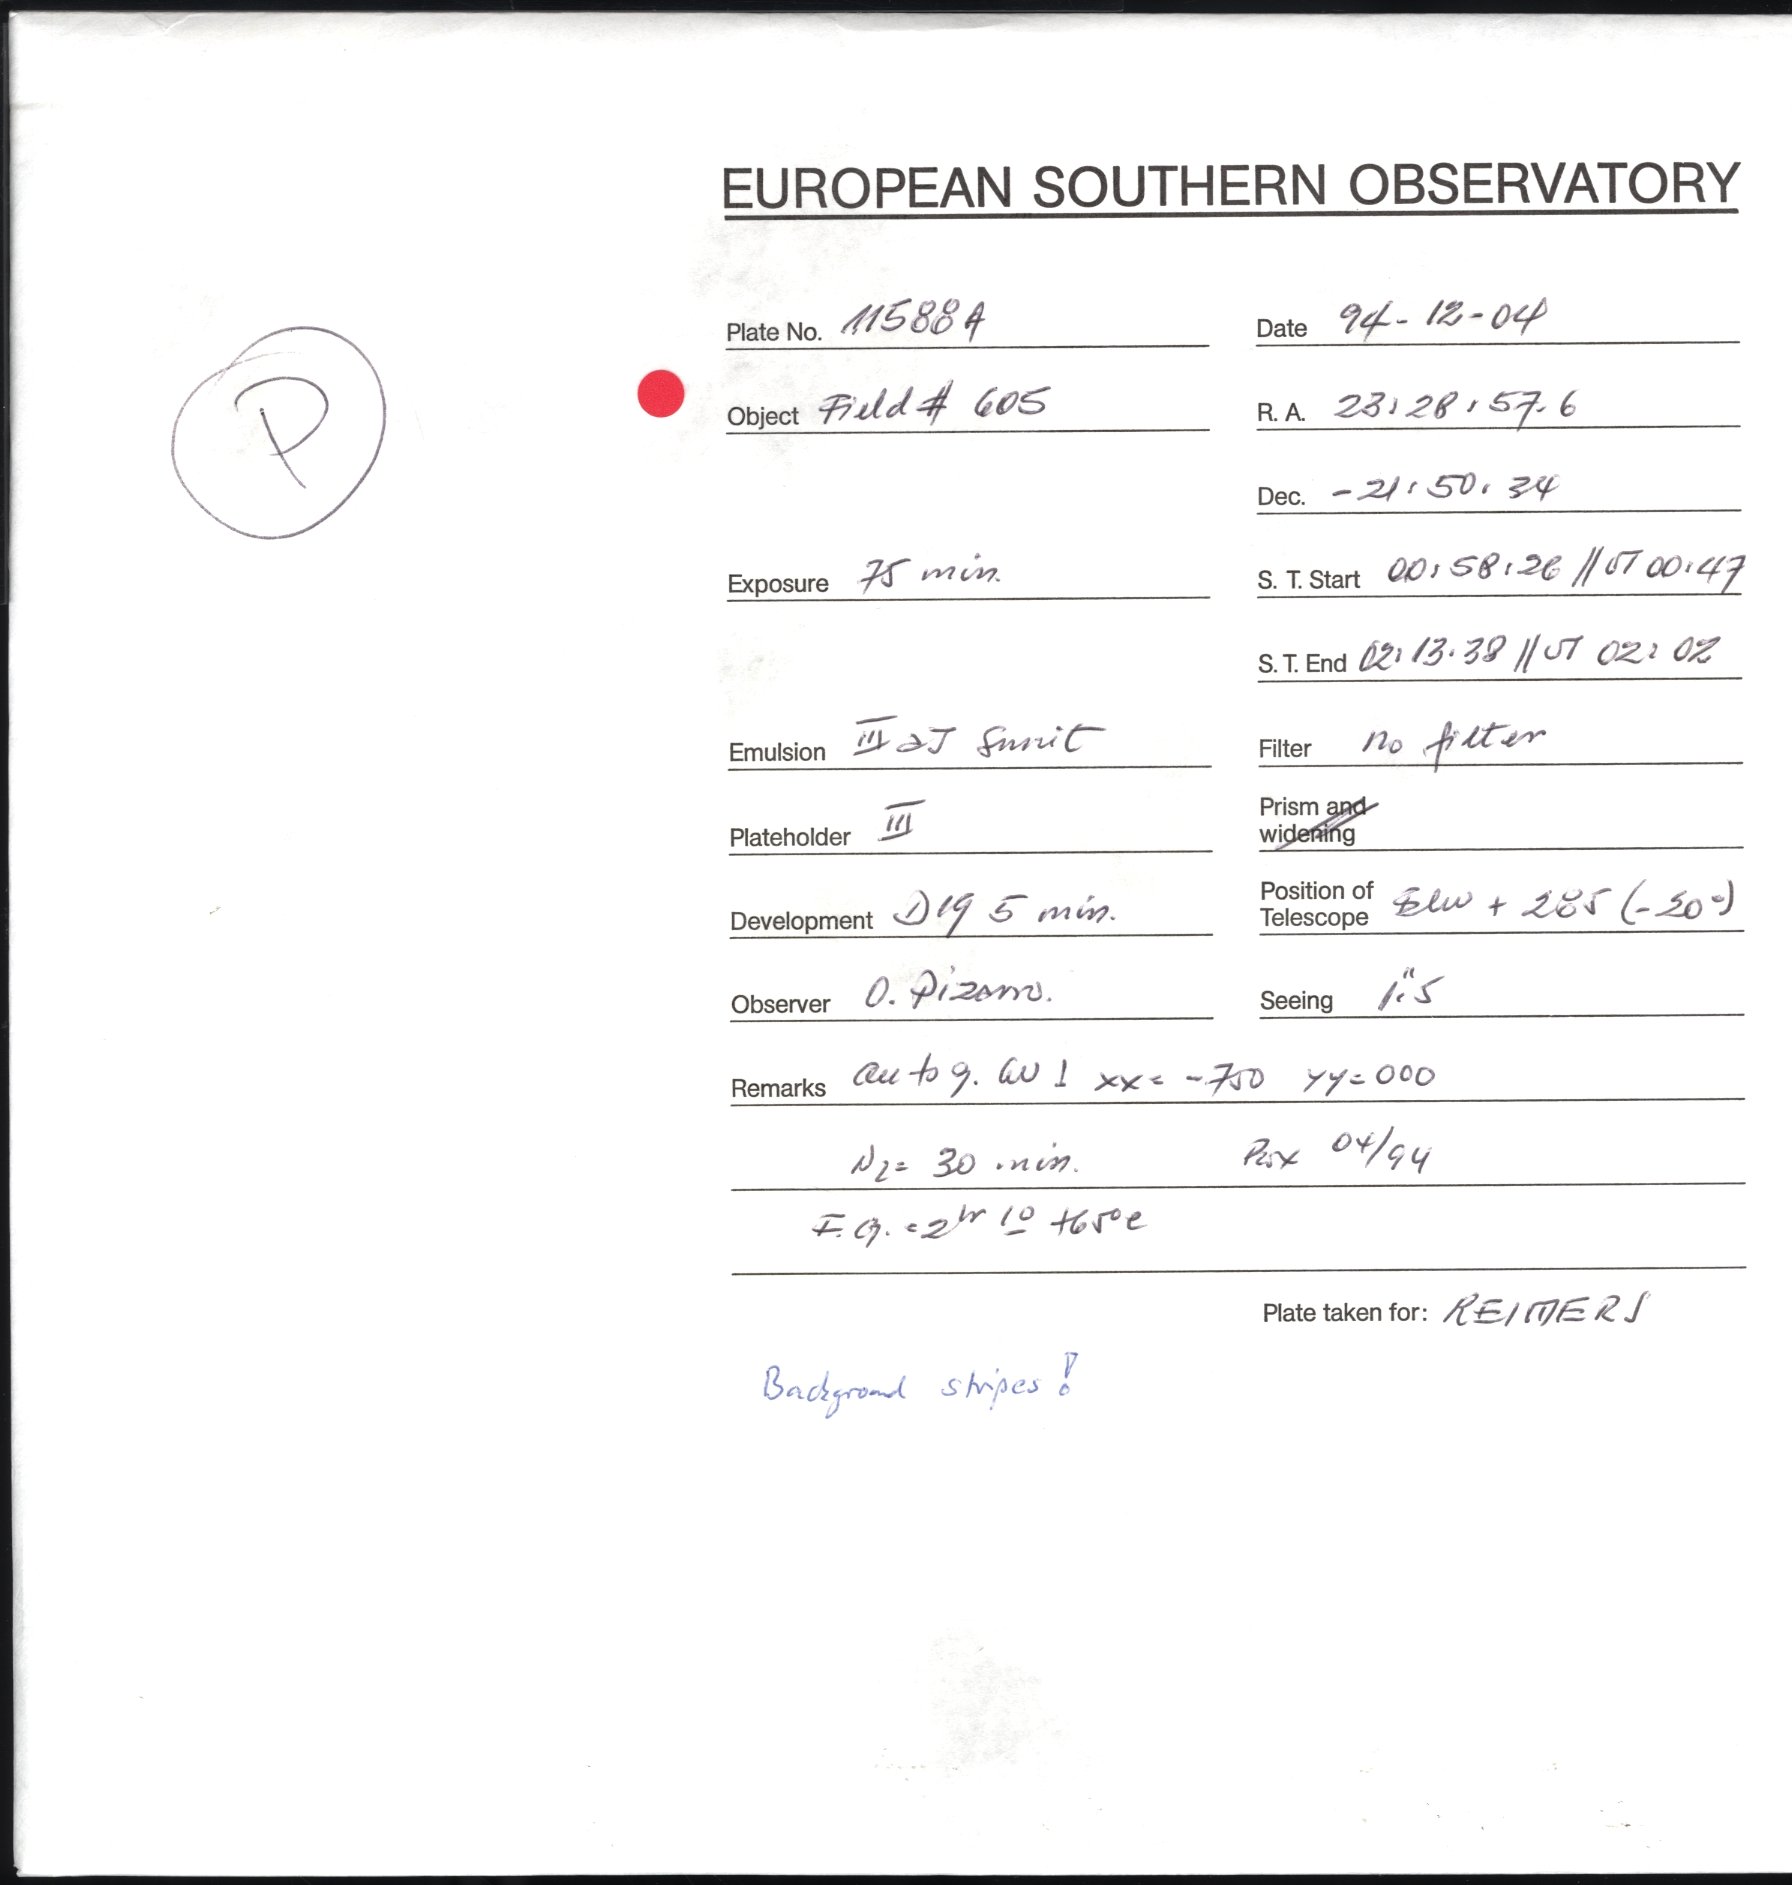 EUROPEAN SOUTHERN OBSERVATORY
Plate No. 11588A
Date 94-12-04
P
Object Field # 605
R. A. 23:28:57.6
Dec. -21:50:34
Exposure 75 min.
S. T. Start 00:58:26 // UT 00:47
S. T. End 02:13:38 // UT 02:02
Emulsion III aJ
Filter no filter
Plateholder III
Prism and widening
Development D19 5 min.
Position of Telescope + 285
Observer O. Pizarro.
Seeing 1".5
Remarks autog. xx= -750 yy=000
N2= 30 min. 04/94
Plate taken for: REIMERS
Background stripes!